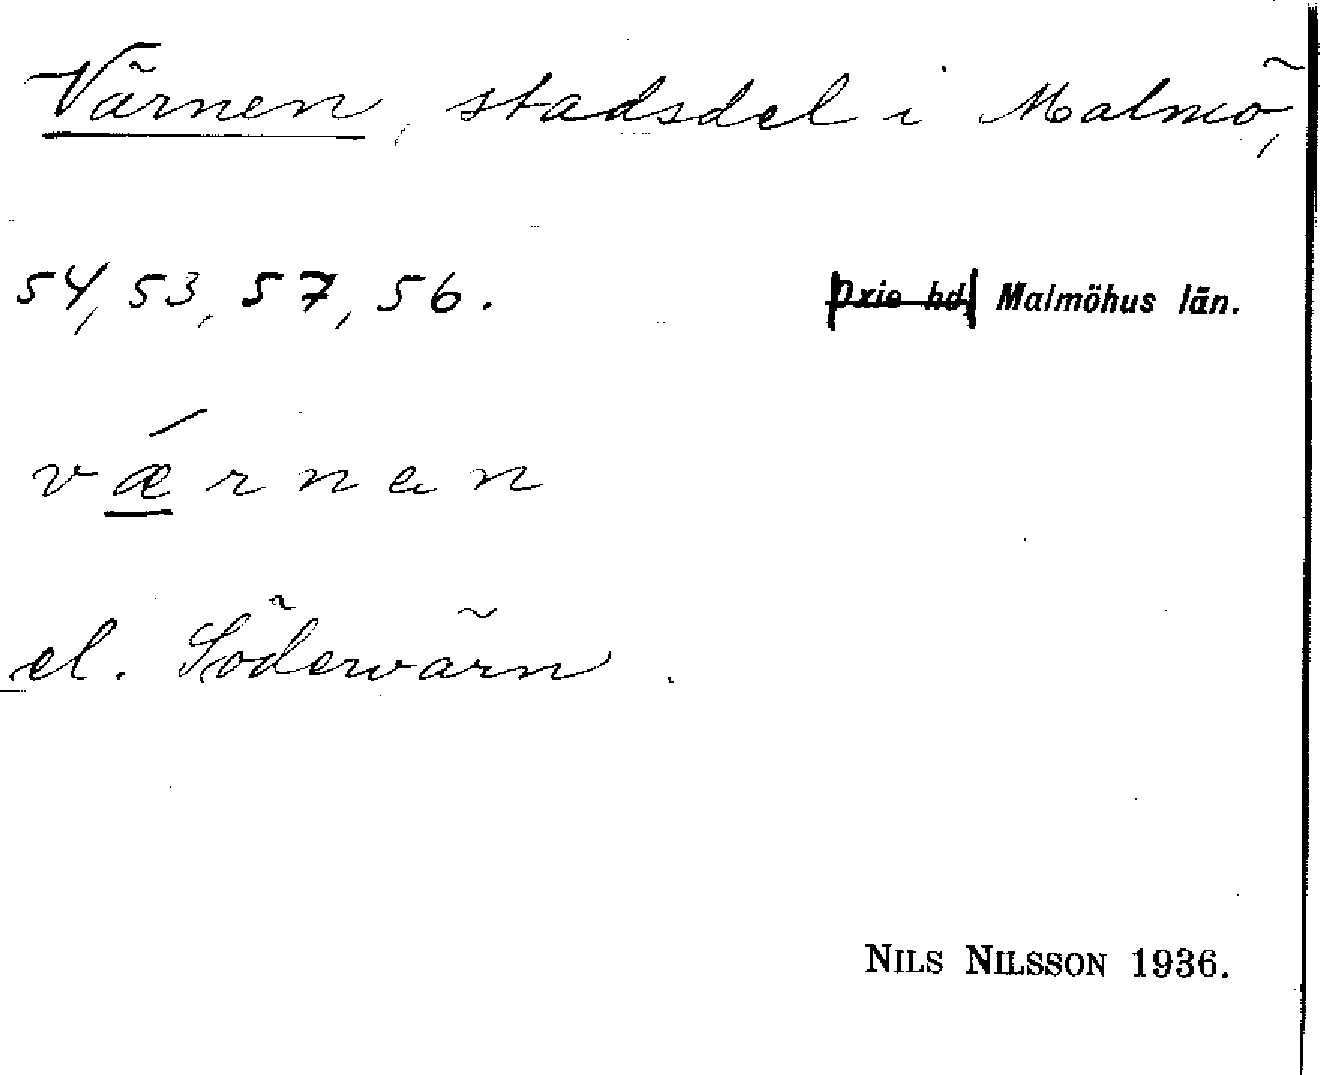 Värnen, stadsdel i Malmö,
54, 53, 57, 56. Oxie hd. Malmöhus län.
v ǽ r n e n
el. Södervärn.
NILS NILSSON 1936.